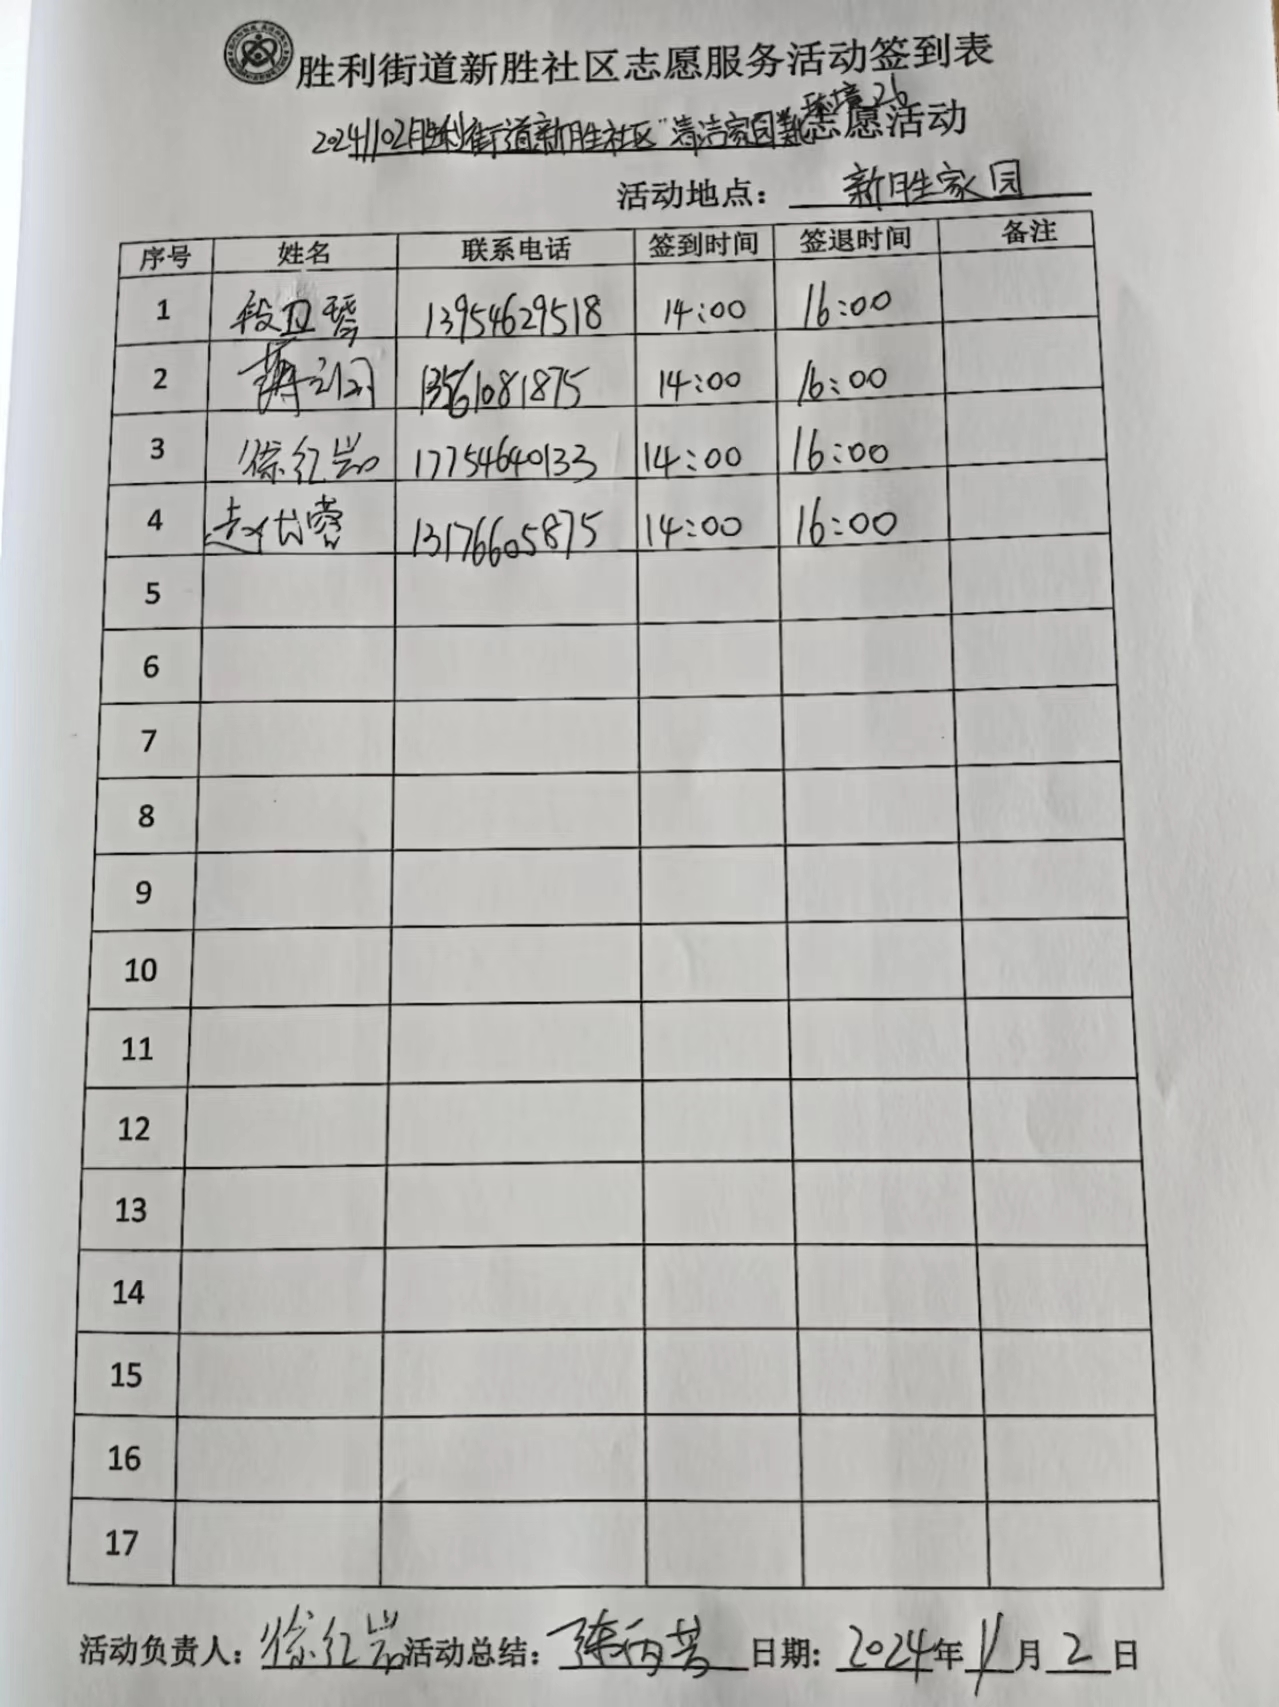 胜利街道新胜社区志愿服务活动签到表
20241102胜利街道新胜社区“清洁家园 环境26 志愿活动
活动地点：新胜家园
序号 姓名 联系电话 签到时间 签退时间 备注
1 段卫琴 13954629518 14:00 16:00
2 13561081875 14:00 16:00
3 徐红岩 17754640133 14:00 16:00
4 赵代蓉 13176605875 14:00 16:00
5
6
7
8
9
10
11
12
13
14
15
16
17
活动负责人：徐红岩 活动总结：陈丙芸 日期：2024年11月2日